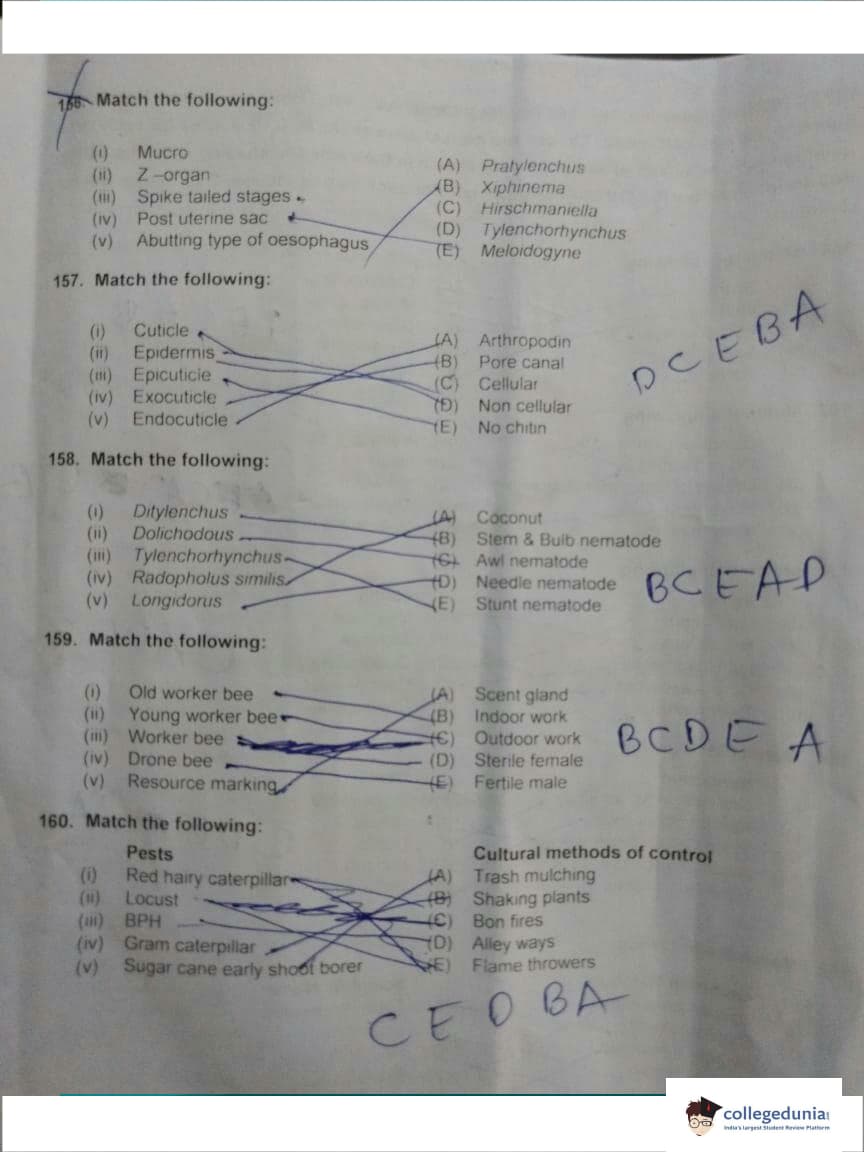 156. Match the following:
(i) Mucro (A) Pratylenchus
(ii) Z –organ (B) Xiphinema
(iii) Spike tailed stages (C) Hirschmaniella
(iv) Post uterine sac (D) Tylenchorhynchus
(v) Abutting type of oesophagus (E) Meloidogyne
157. Match the following:
(i) Cuticle (A) Arthropodin
(ii) Epidermis (B) Pore canal
(iii) Epicuticie (C) Cellular
(iv) Exocuticle (D) Non cellular
(v) Endocuticle (E) No chitin
D C E B A
158. Match the following:
(i) Ditylenchus (A) Coconut
(ii) Dolichodous (B) Stem & Bulb nematode
(iii) Tylenchorhynchus (C) Awl nematode
(iv) Radopholus similis (D) Needle nematode
(v) Longidorus (E) Stunt nematode
B C E A D
159. Match the following:
(i) Old worker bee (A) Scent gland
(ii) Young worker bee (B) Indoor work
(iii) Worker bee (C) Outdoor work
(iv) Drone bee (D) Sterile female
(v) Resource marking (E) Fertile male
B C D E A
160. Match the following:
Pests Cultural methods of control
(i) Red hairy caterpillar (A) Trash mulching
(ii) Locust (B) Shaking plants
(iii) BPH (C) Bon fires
(iv) Gram caterpillar (D) Alley ways
(v) Sugar cane early shoot borer (E) Flame throwers
C E D B A
collegedunia
India's largest Student Review Platform